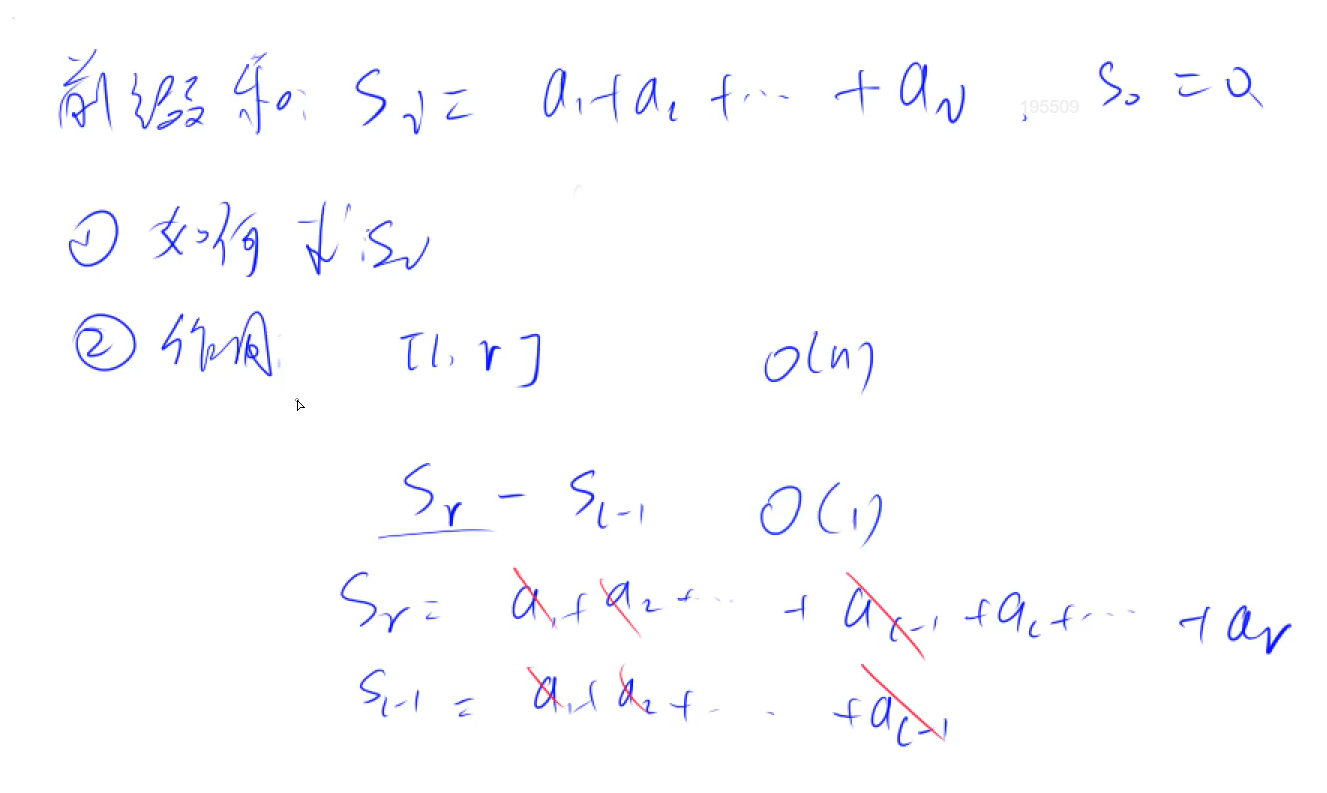 前缀和: Sᵢ = a₁+a₂ +… +aᵢ , S₀ = 0
195509
① 如何求 Sᵢ
② 作用 [l, r] O(n)
Sᵣ - Sₗ₋₁ O(1)
Sᵣ = a₁+a₂+… +aₗ₋₁+aₗ+… +aᵣ
Sₗ₋₁ = a₁+a₂+… +aₗ₋₁